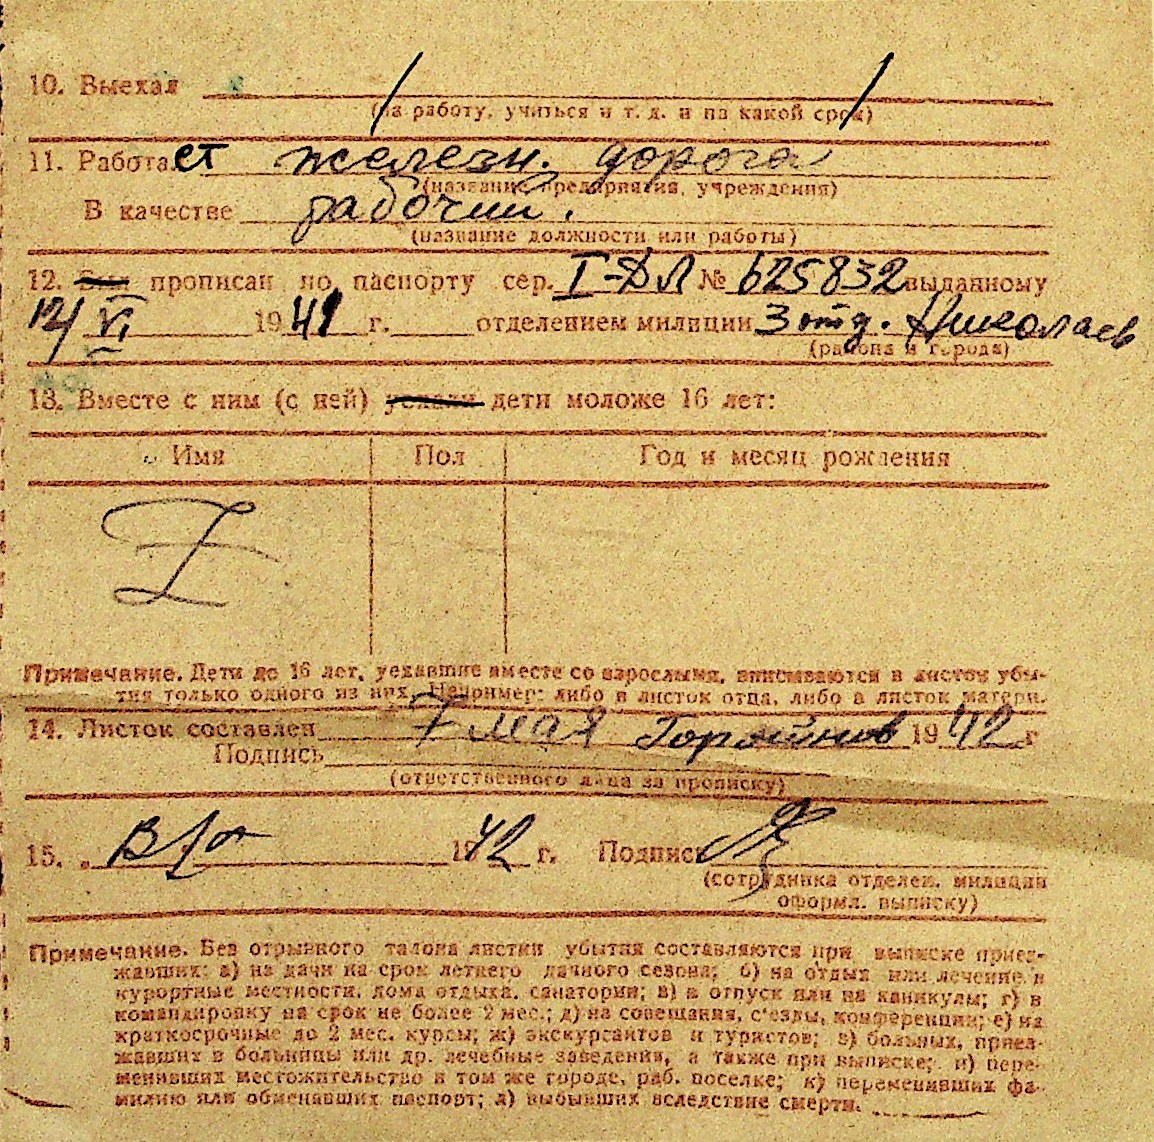 10. Выехал
(на работу, учиться и т. д. и на какой срок)
11. Работает железн. дорога
(название предприятия, учреждения)
В качестве рабочий.
(название должности или работы)
12. Был прописан по паспорту сер. I-ДЛ № 625832 выданному
14/VI 1941 г. отделением милиции 3 отд. Николаев
(района и города)
13. Вместе с ним (с ней) уехали дети моложе 16 лет:
Имя Пол Год и месяц рождения
Z
Примечание. Дети до 16 лет, уехавшие вместе со взрослыми, вписываются в листок убы-
тия только одного из них. Например: либо в листок отца, либо в листок матери.
14. Листок составлен 7 мая 1942 г
Подпись
(ответственного лица за прописку)
15. 1942 г. Подпись
(сотрудника отделен. милиции
оформл. выписку)
Примечание. Без отрывного талона листки убытия составляются при выписке приез-
жавших: а) на дачи на срок летнего дачного сезона; б) на отдых или лечение в
курортные местности, дома отдыха, санатории; в) в отпуск или на каникулы; г) в
командировку на срок не более 2 мес.; д) на совещания, с'езды, конференции; е) на
краткосрочные до 2 мес. курсы; ж) экскурсантов и туристов; з) больных, приез-
жавших в больницы или др. лечебные заведения, а также при выписке; и) пере-
менивших местожительство в том же городе, раб. поселке; к) переменивших фа-
милию или обменявших паспорт; л) выбывших вследствие смерти.